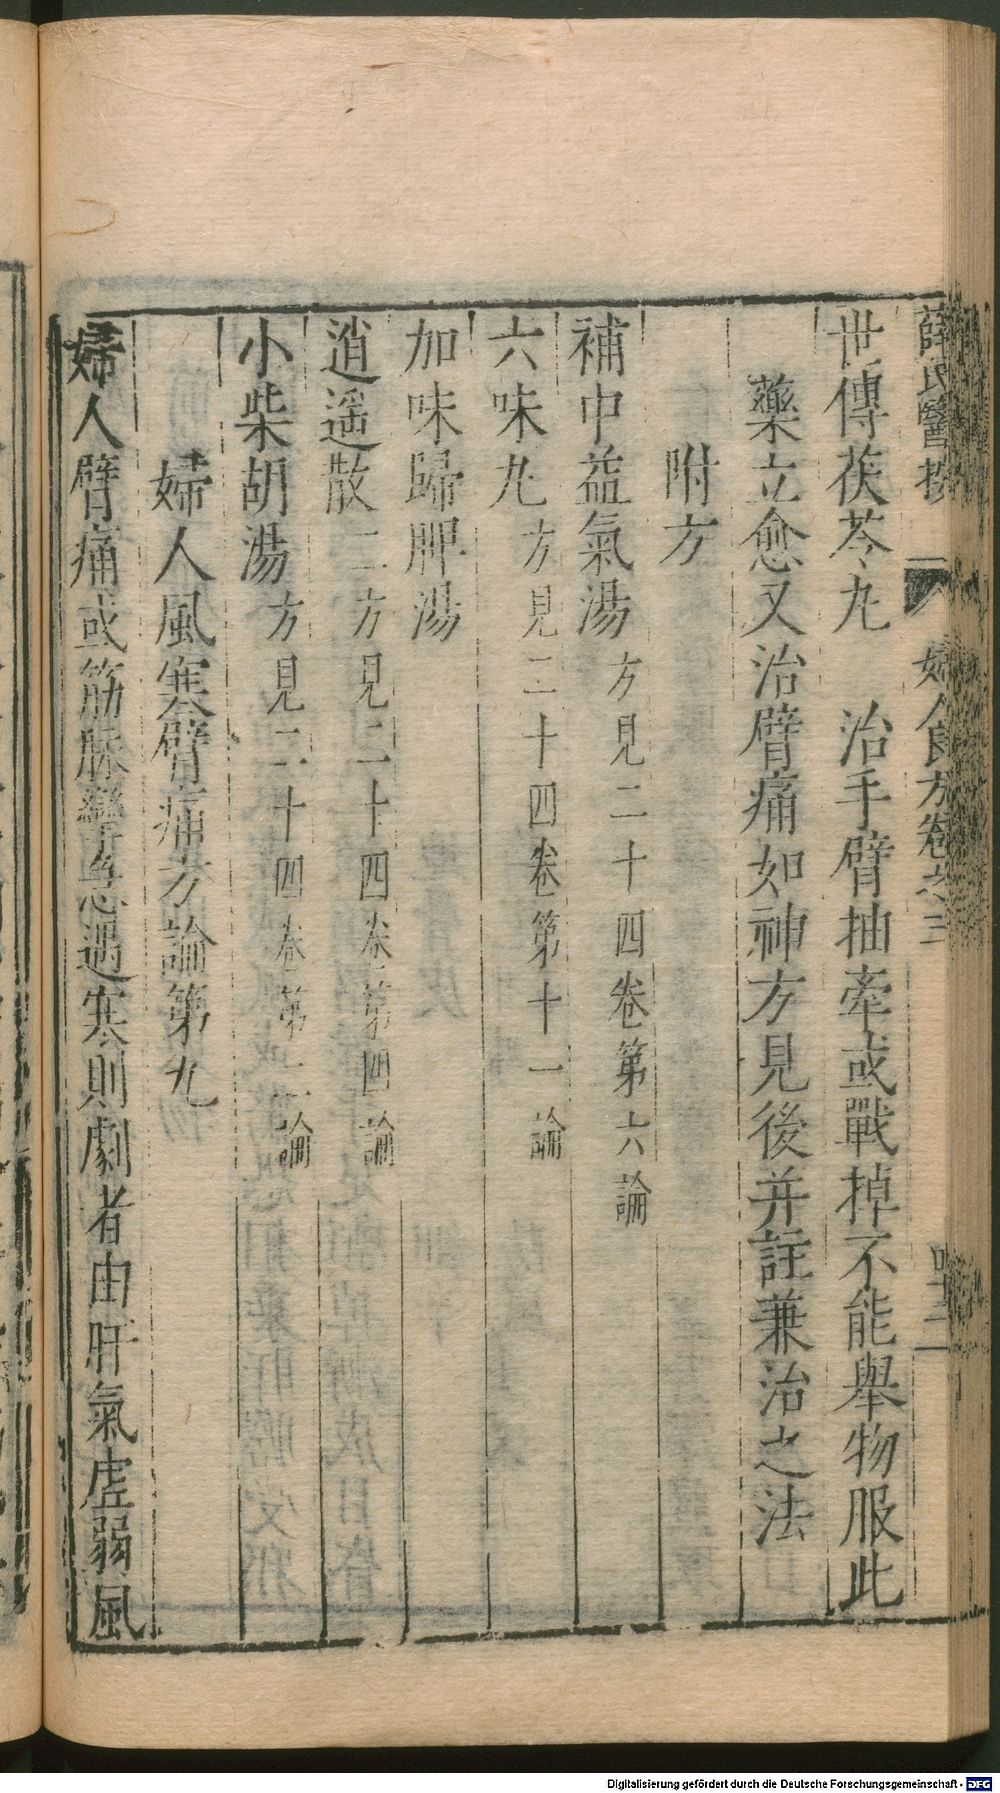 薛氏醫按 婦人良方卷之三 四十二
世傳茯苓丸 治手臂抽牽或戰掉不能舉物服此
藥立愈又治臂痛如神方見後并註兼治之法
附方
補中益氣湯方見二十四卷第六論
六味丸方見二十四卷第十一論
加味歸脾湯
逍遥散二方見二十四卷第四論
小柴胡湯方見二十四卷第一論
婦人風寒臂痛方論第九
婦人臂痛或筋脈攣急遇寒則劇者由肝氣虛弱風
Digitalisierung gefördert durch die Deutsche Forschungsgemeinschaft - DFG